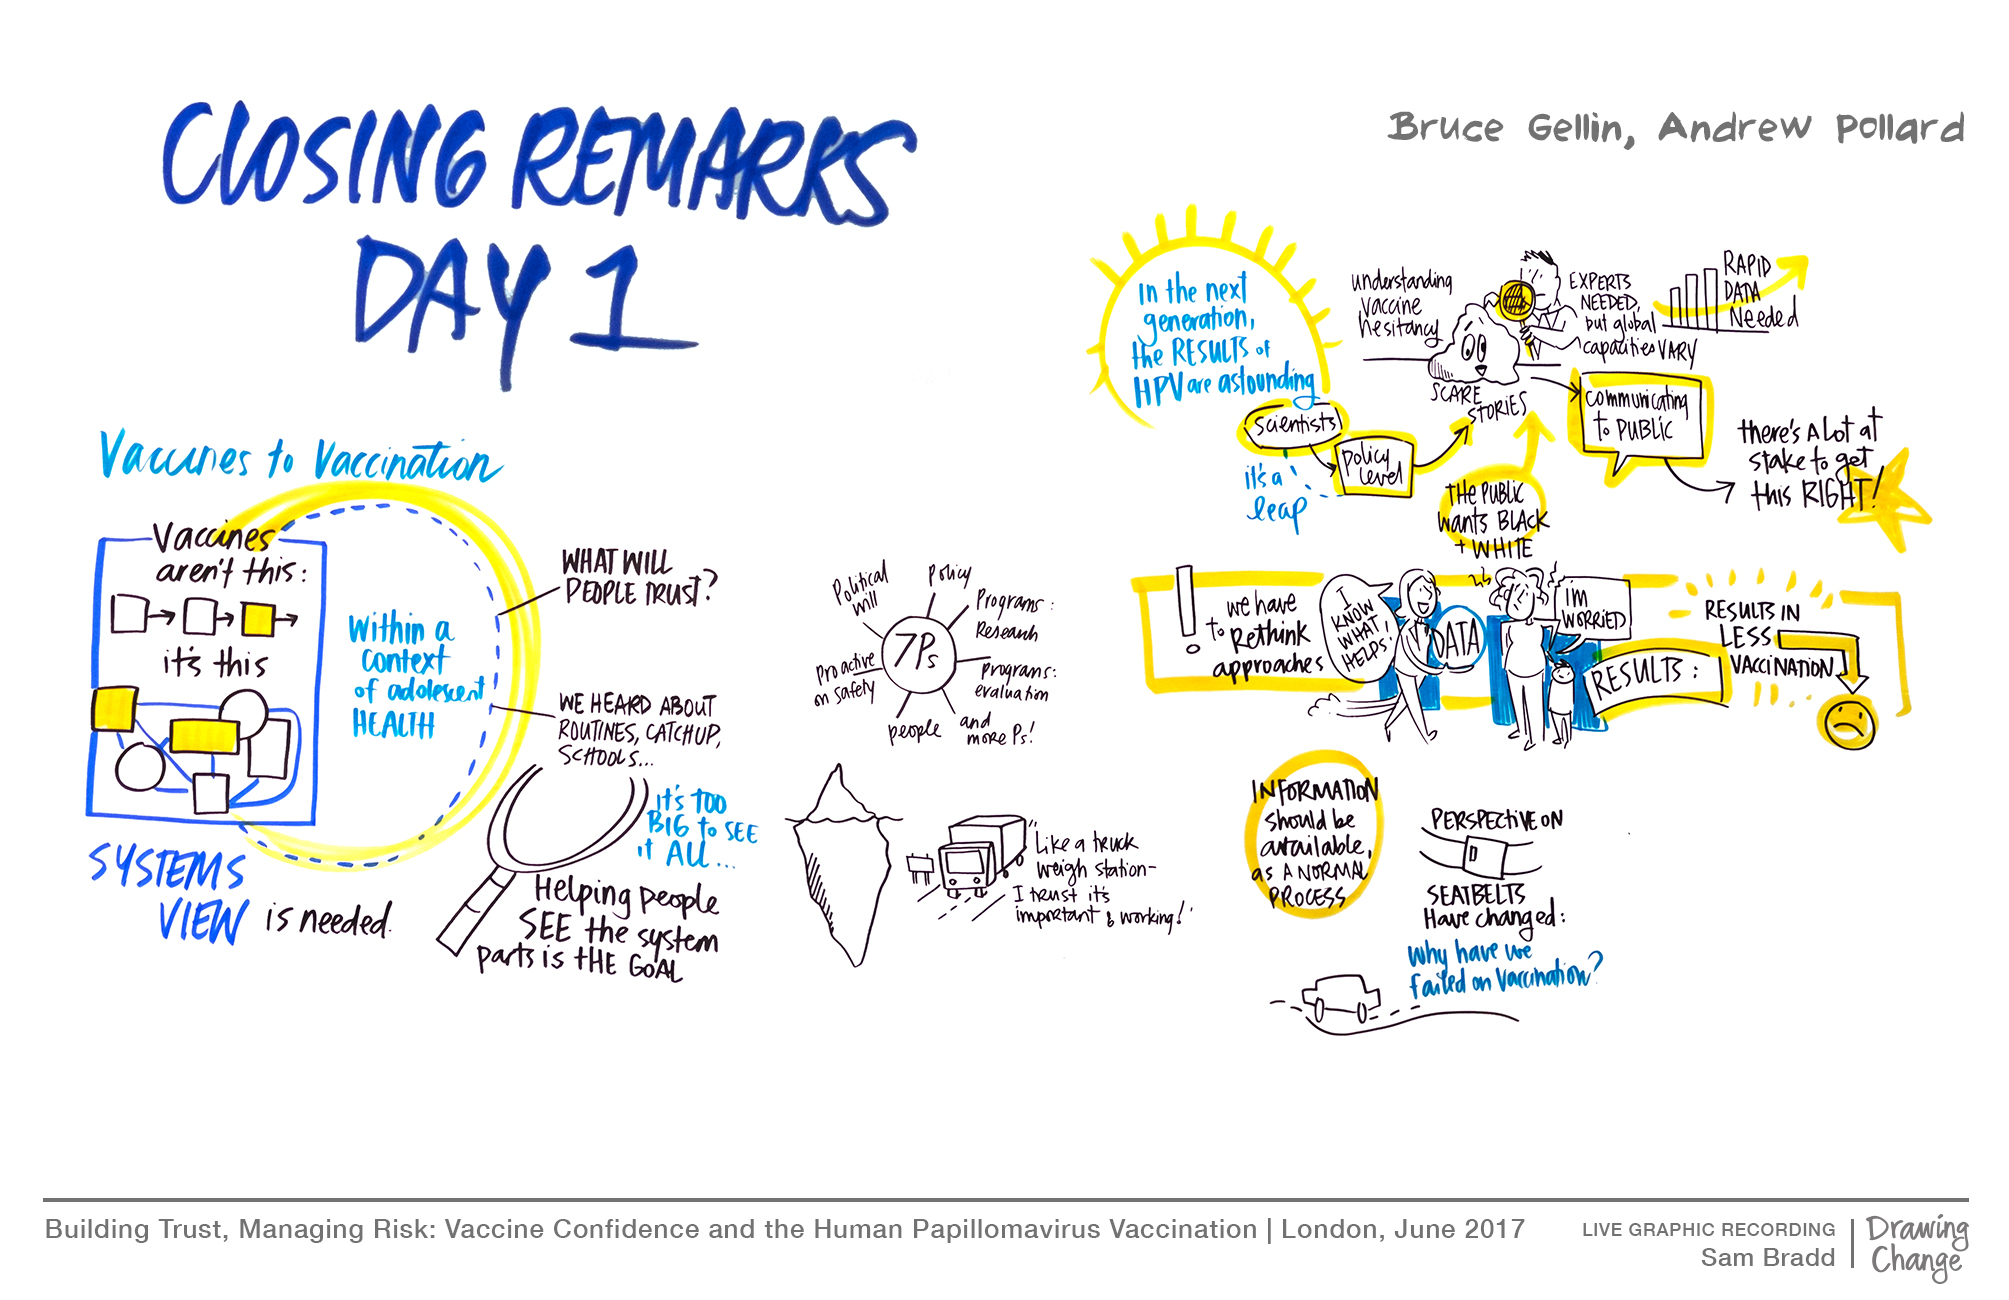 CLOSING REMARKS
DAY 1
Bruce Gellin, Andrew Pollard
Vaccines to Vaccination
Vaccines
aren't this:
it's this
Within a
context
of adolescent
HEALTH
SYSTEMS
VIEW is needed.
WHAT WILL
PEOPLE TRUST?
WE HEARD ABOUT
ROUTINES, CATCHUP,
SCHOOLS...
it's TOO
BIG to SEE
it ALL...
Helping people
SEE the system
parts is tHE GOAL
7Ps
Political
will
policy
Programs:
Research
programs:
evaluation
and
more Ps!
people
Proactive
on safety
"Like a truck
weigh station-
I trust it's
important & working!"
In the next
generation,
the RESULTS of
HPV are astounding
Scientists
policy
level
it's a
leap
understanding
vaccine
hesitancy
SCARE
STORIES
EXPERTS
NEEDED,
but global
capacities VARY
RAPID
DATA
Needed
communicating
to PUBLIC
there's A lot at
stake to get
this RIGHT!
THE PUBLIC
wants BLACK
+ WHITE
!
we have
to Rethink
approaches
I
KNOW
WHAT
HELPS!
DATA
I'M
WORRIED
RESULTS:
RESULTS IN
LESS
VACCINATION
INFORMATION
should be
available,
as A NORMAL
PROCESS
PERSPECTIVE ON
SEATBELTS
Have changed:
Why have we
failed on Vaccination?
Building Trust, Managing Risk: Vaccine Confidence and the Human Papillomavirus Vaccination | London, June 2017
LIVE GRAPHIC RECORDING
Sam Bradd
Drawing
Change